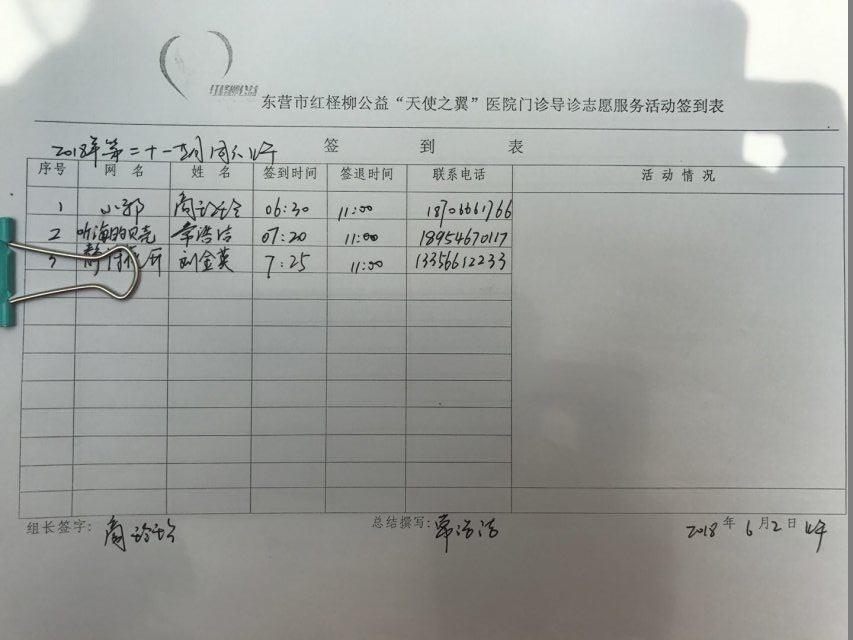 东营市红柽柳公益“天使之翼”医院门诊导诊志愿服务活动签到表
签 到 表
2018年第二十一
序号 网 名 姓 名 签到时间 签退时间 联系电话 活动情况
1 小郭 06:30 11:00 18706661766
2 听海的贝壳 07:20 11:00 18954670117
3 刘金英 7:25 11:00 13356612233
组长签字: 总结撰写: 2018年6月2日